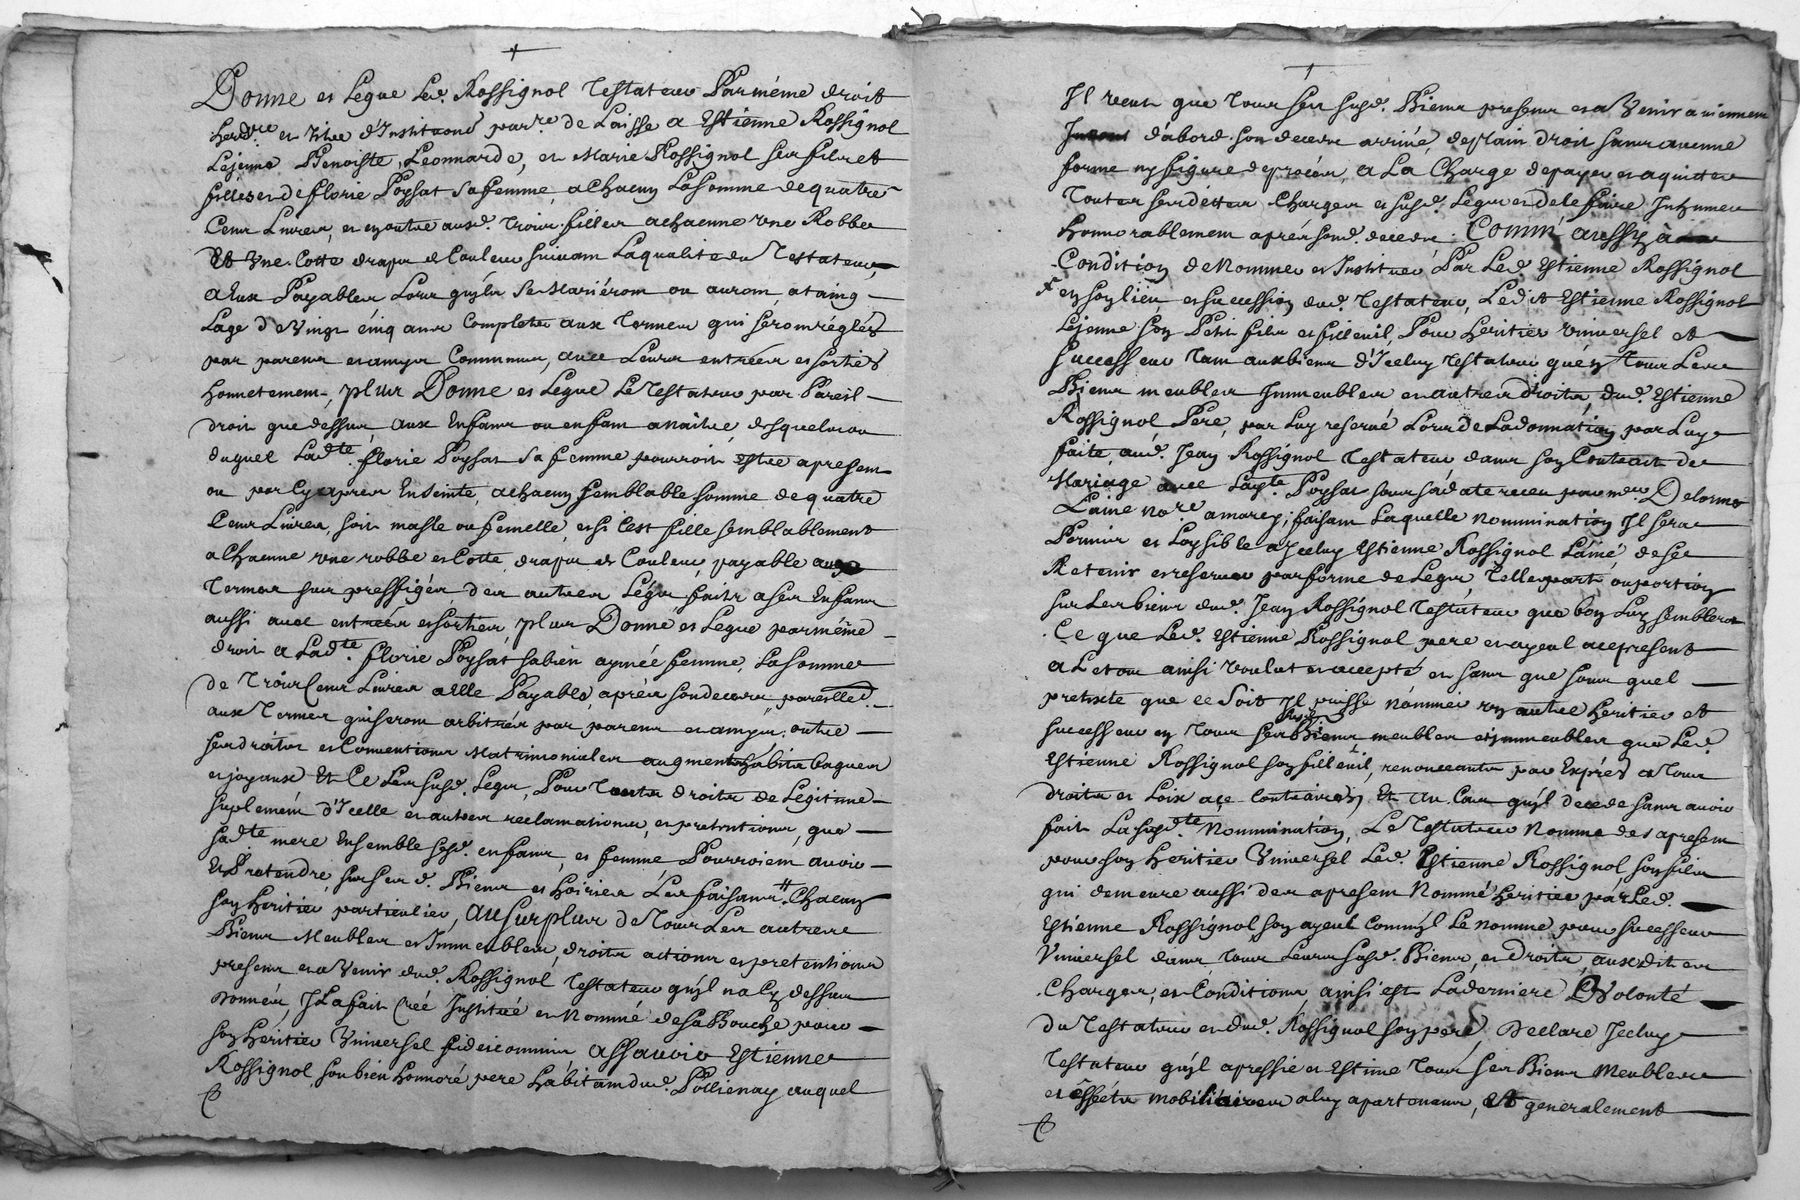 Donne et Legue Led. Rossignol Testateur Par méme droit
hered.re et titre d'Institu͞on par.re de Laisse a Estienne Rossignol
Lejeune Benoiste, Leonnarde, et Marie Rossignol ses fils et
filles et de florie Poysat sa femme, a Chacun La Somme de quatre
Cens Livres, et en outre ausd. trois filles a chacune vne Robbe
Et Vne Cotte drap et Couleur suivant La qualité du Testateur,
a Eux Payables Lors qu'jls se Mariéront ou auront ataing
Lage de vingt cinq ans Complets aux termes qui seront réglés
par parens et amys Communs, avec Leurs entrées et sorties
honnetement, plus Donne et Legue Le Testateur par Pareil
droit que dessus, aux Enfans ou enfant a naitre, desquels ou
duquel Lad.te florie Poysat sa femme pourroit estre apresent
ou par Cy apres Enseinte, a chacun semblable somme de quatre
Cens Livres, soit masle ou femelle, et si C'est fille semblablement
a Chacune vne robbe et Cotte, drap et Couleur, payable aux
termes sus preffigés des autres Légas faits a ses Enfans
aussi avec entrées et sorties, plus Donne et Legue par méme
droit a Lad.te florie Poysat sa bien aymée femme, La somme
de Trois Cens Livres a Elle Payables, aprés son deces pareilles
aux termes qui seront arbitrés par parens et amys, outre
ses droits et Conventions Matrimoniales augment habits bagues
et joyaux Et Ce Les susd. Legas, Pour Toutes droits de Légitime
suplement d'Jcelle et autres reclamations, et pretentions, que
sad.te mere Ensemble sesd. enfans, et femme Pourroient avoir
Et Pretendre, sur sesd. Biens et hoiries Les faisant Chacun
son heritier particulier, Au surplus de Tous Les autres
Biens Meubles et Immeubles, droits actions et pretentions
presens et a Venir dud. Rossignol Testateur qu'jl na Cy dessus
Donnés, Jl a fait Creé Jnstitué et Nommé de sa Bouche pour
son heritier Vniversel fideicommis assavoir Estienne
Rossignol son bien honnoré pere habitant dud. Pollienay auquel
Il veut que Tous ses susd. Biens presens et a Venir aviennent
d'abord son deces arrivé, de plain droit sans aucune
forme ny figure de procés, a La Charge de payer et aquitter
Toutes ses dettes Charges et susd. Legas et de le faire Jnhumer
honnorablement aprés sond. deces. Comm' aussy à
Condition de Nommer et Jnstituer Par Led. Estienne Rossignol
en son lieu et succession dud. Testateur, Ledit Estienne Rossignol
Lejeune son Petit fils et filleuil, Pour heritier vniversel et
successeur Tant aux biens d'Jceluy Testateur qu'en Tous Les
Biens meubles Jmmeubles et autres droits, dud. Estienne
Rossignol Pere, par Luy reservé Lors de La donnation par Luy
faite, aud. Jean Rossignol Testateur dans son Contract de
Mariage avec Lad.te Poysat sous sa date receu par me Delorme
Laine No.re a marcy; faisant Laquelle nommination Jl sera
Permis et Loysible a Jceluy Estienne Rossignol Lainé, de se
Retenir et reserver par forme de Legas, Telle part ou portion
sur Les biens dud. Jean Rossignol Testateur que bon Luy semblera
Ce que Led. Estienne Rossignol pere et ayeul ace present
a Letout ainsi voulut et accepté et sans que sous quel
pretexte que ce Soit Jl puisse nommer vn autre heritier et
successeur en Tous ses susd. Biens meubles et jmmeubles que Led.
Estienne Rossignol son filleuil, renonceants par Expres a tous
droits et Loix ace Contraires, Et Au Cas qu'jl decede sans avoir
fait La susd.te Nommination, Le Testateur Nomme des apresent
pour son heritier Vniversel Led. Estienne Rossignol, son fils
qui demeure aussi des apresent Nommé heritier par Led.
Estienne Rossignol, son ayeul Comm'jl Le nomme pour successeur
Vniversel dans Tous Leurs susd. Biens, et Droits, ausdites
Charges, et Conditions, ainsi est La derniere Volonté
du Testateur et dud. Rossignol son pere, Declare Jceluy
Testateur qu'jl apressie et Estime Tous ses Biens Meubles
et éfféts mobiliaires a luy apartenans, Et generalement